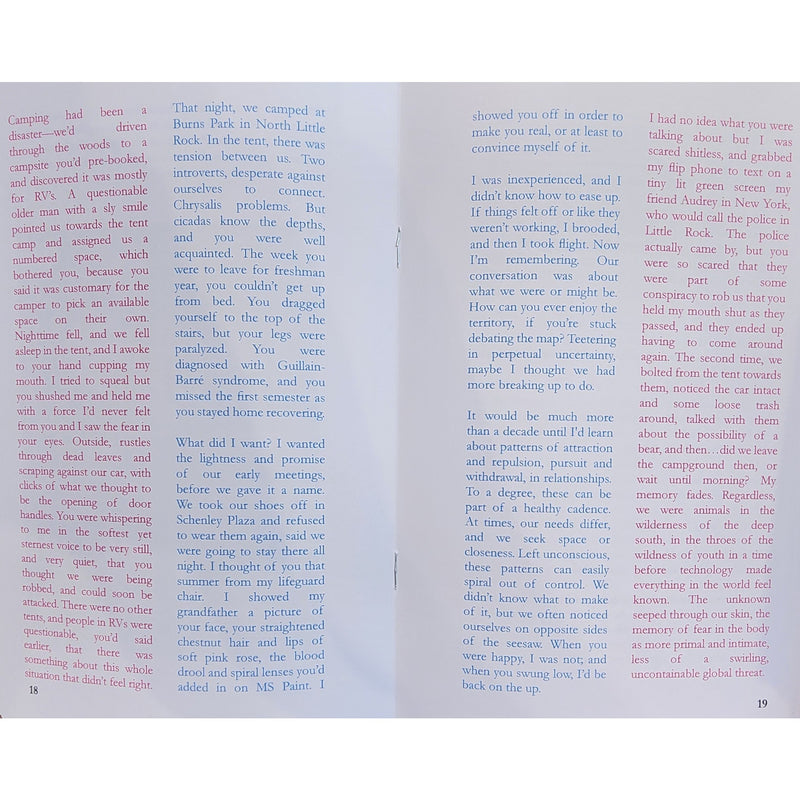 Camping had been a
disaster—we'd driven
through the woods to a
campsite you'd pre-booked,
and discovered it was mostly
for RV's. A questionable
older man with a sly smile
pointed us towards the tent
camp and assigned us a
numbered space, which
bothered you, because you
said it was customary for the
camper to pick an available
space on their own.
Nighttime fell, and we fell
asleep in the tent, and I awoke
to your hand cupping my
mouth. I tried to squeal but
you shushed me and held me
with a force I'd never felt
from you and I saw the fear in
your eyes. Outside, rustles
through dead leaves and
scraping against our car, with
clicks of what we thought to
be the opening of door
handles. You were whispering
to me in the softest yet
sternest voice to be very still,
and very quiet, that you
thought we were being
robbed, and could soon be
attacked. There were no other
tents, and people in RVs were
questionable, you'd said
earlier, that there was
something about this whole
situation that didn't feel right.
18
That night, we camped at
Burns Park in North Little
Rock. In the tent, there was
tension between us. Two
introverts, desperate against
ourselves to connect.
Chrysalis problems. But
cicadas know the depths,
and you were well
acquainted. The week you
were to leave for freshman
year, you couldn't get up
from bed. You dragged
yourself to the top of the
stairs, but your legs were
paralyzed. You were
diagnosed with Guillain-
Barré syndrome, and you
missed the first semester as
you stayed home recovering.
What did I want? I wanted
the lightness and promise
of our early meetings,
before we gave it a name.
We took our shoes off in
Schenley Plaza and refused
to wear them again, said we
were going to stay there all
night. I thought of you that
summer from my lifeguard
chair. I showed my
grandfather a picture of
your face, your straightened
chestnut hair and lips of
soft pink rose, the blood
drool and spiral lenses you'd
added in on MS Paint. I
showed you off in order to
make you real, or at least to
convince myself of it.
I was inexperienced, and I
didn't know how to ease up.
If things felt off or like they
weren't working, I brooded,
and then I took flight. Now
I'm remembering. Our
conversation was about
what we were or might be.
How can you ever enjoy the
territory, if you're stuck
debating the map? Teetering
in perpetual uncertainty,
maybe I thought we had
more breaking up to do.
It would be much more
than a decade until I'd learn
about patterns of attraction
and repulsion, pursuit and
withdrawal, in relationships.
To a degree, these can be
part of a healthy cadence.
At times, our needs differ,
and we seek space or
closeness. Left unconscious,
these patterns can easily
spiral out of control. We
didn't know what to make
of it, but we often noticed
ourselves on opposite sides
of the seesaw. When you
were happy, I was not; and
when you swung low, I'd be
back on the up.
I had no idea what you were
talking about but I was
scared shitless, and grabbed
my flip phone to text on a
tiny lit green screen my
friend Audrey in New York,
who would call the police in
Little Rock. The police
actually came by, but you
were so scared that they
were part of some
conspiracy to rob us that you
held my mouth shut as they
passed, and they ended up
having to come around
again. The second time, we
bolted from the tent towards
them, noticed the car intact
and some loose trash
around, talked with them
about the possibility of a
bear, and then…did we leave
the campground then, or
wait until morning? My
memory fades. Regardless,
we were animals in the
wilderness of the deep
south, in the throes of the
wildness of youth in a time
before technology made
everything in the world feel
known. The unknown
seeped through our skin, the
memory of fear in the body
as more primal and intimate,
less of a swirling,
uncontainable global threat.
19